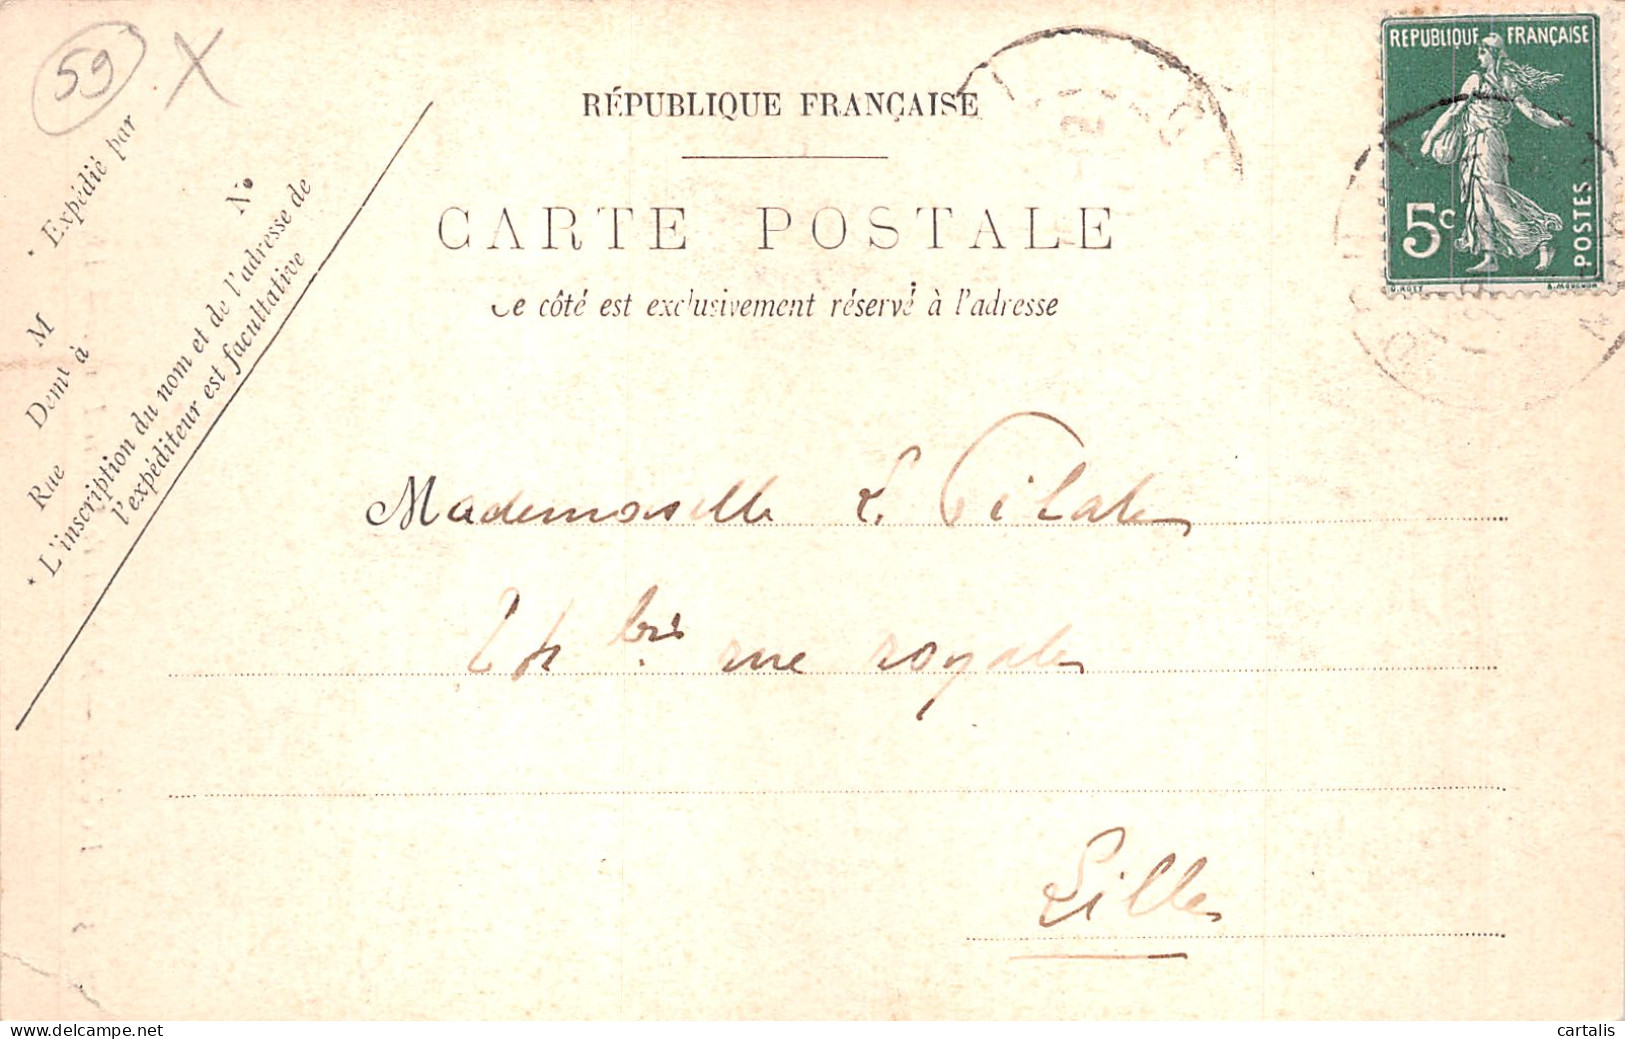 59 X
RÉPUBLIQUE FRANÇAISE
CARTE POSTALE
Ce côté est exclusivement réservé à l'adresse
* Expédié par
M N°
Demt à
Rue
* L'inscription du nom et de l'adresse de
l'expéditeur est facultative
REPUBLIQUE FRANÇAISE
5c
POSTES
O. ROTY E. MOUCHON
Mademoiselle L.
bis rue royale
Lille
www.delcampe.net
cartalis